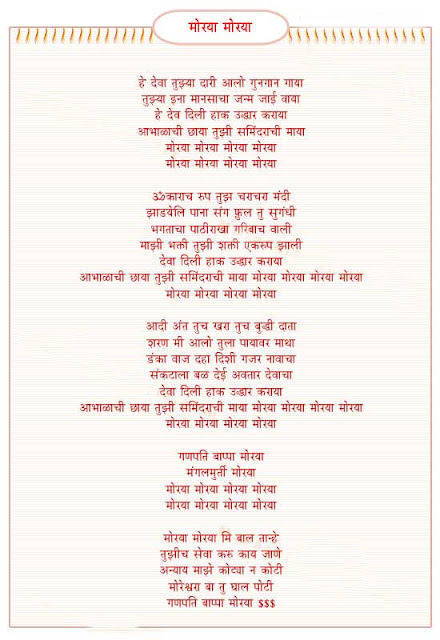 मोरया मोरया
हे देवा तुझ्या दारी आलो गुनगान गाया
तुझ्या इना मानसाचा जन्म जाई वाया
हे देव दिली हाक उद्धार कराया
आभाळाची छाया तुझी समिंदराची माया
मोरया मोरया मोरया मोरया
मोरया मोरया मोरया मोरया
ॐकाराच रुप तुझ चराचरा मंदी
झाडयेलि पाना संग फ़ुल तु सुगंधी
भगताचा पाठीराखा गरिवाच वाली
माझी भक्ती तुझी शक्ती एकरुप झाली
देवा दिली हाक उद्धार कराया
आभाळाची छाया तुझी समिंदराची माया मोरया मोरया मोरया मोरया
मोरया मोरया मोरया मोरया
आदी अंत तुच खरा तुच बुद्धी दाता
शरण मी आलो तुला पायावर माथा
डंका वाज दहा दिशी गजर नावाचा
संकटाला बळ देई अवतार देवाचा
देवा दिली हाक उद्धार कराया
आभाळाची छाया तुझी समिंदराची माया मोरया मोरया मोरया मोरया
मोरया मोरया मोरया मोरया
गणपति बाप्पा मोरया
मंगलमुर्ती मोरया
मोरया मोरया मोरया मोरया
मोरया मोरया मोरया मोरया
मोरया मोरया मि बाल तान्हे
तुझीच सेवा करु काय जाणे
अन्याय माझे कोट्या न कोटी
मोरेश्वरा बा तु घाल पोटी
गणपति बाप्पा मोरया $$$